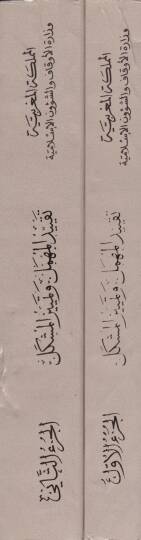 المملكة المغربية
وزارة الأوقاف والشؤون الإسلامية
تقييد المهمل وتمييز المشكل
الجزء الأول
المملكة المغربية
وزارة الأوقاف والشؤون الإسلامية
تقييد المهمل وتمييز المشكل
الجزء الثاني